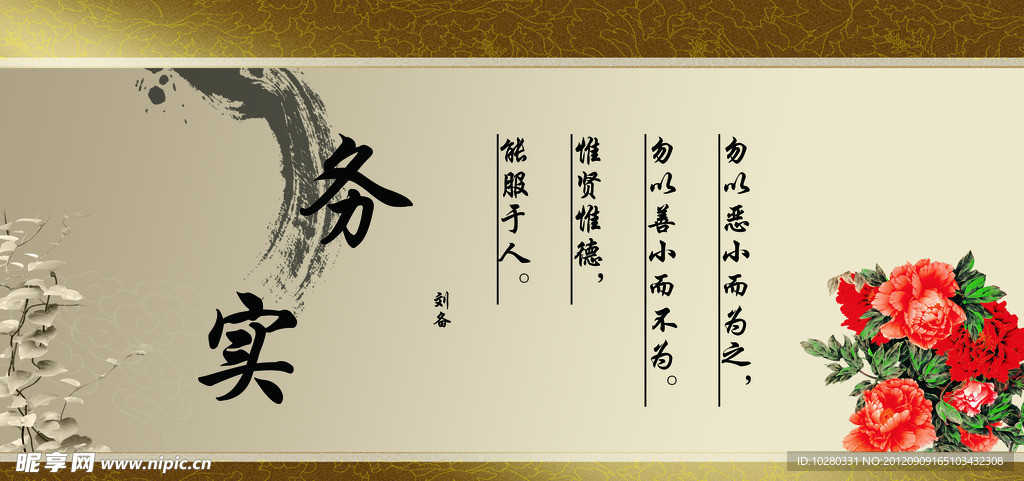 勿以恶小而为之，
勿以善小而不为。
惟贤惟德，
能服于人。
刘备
务
实
昵享网 www.nipic.cn
ID:10280331 NO:20120909165103432308